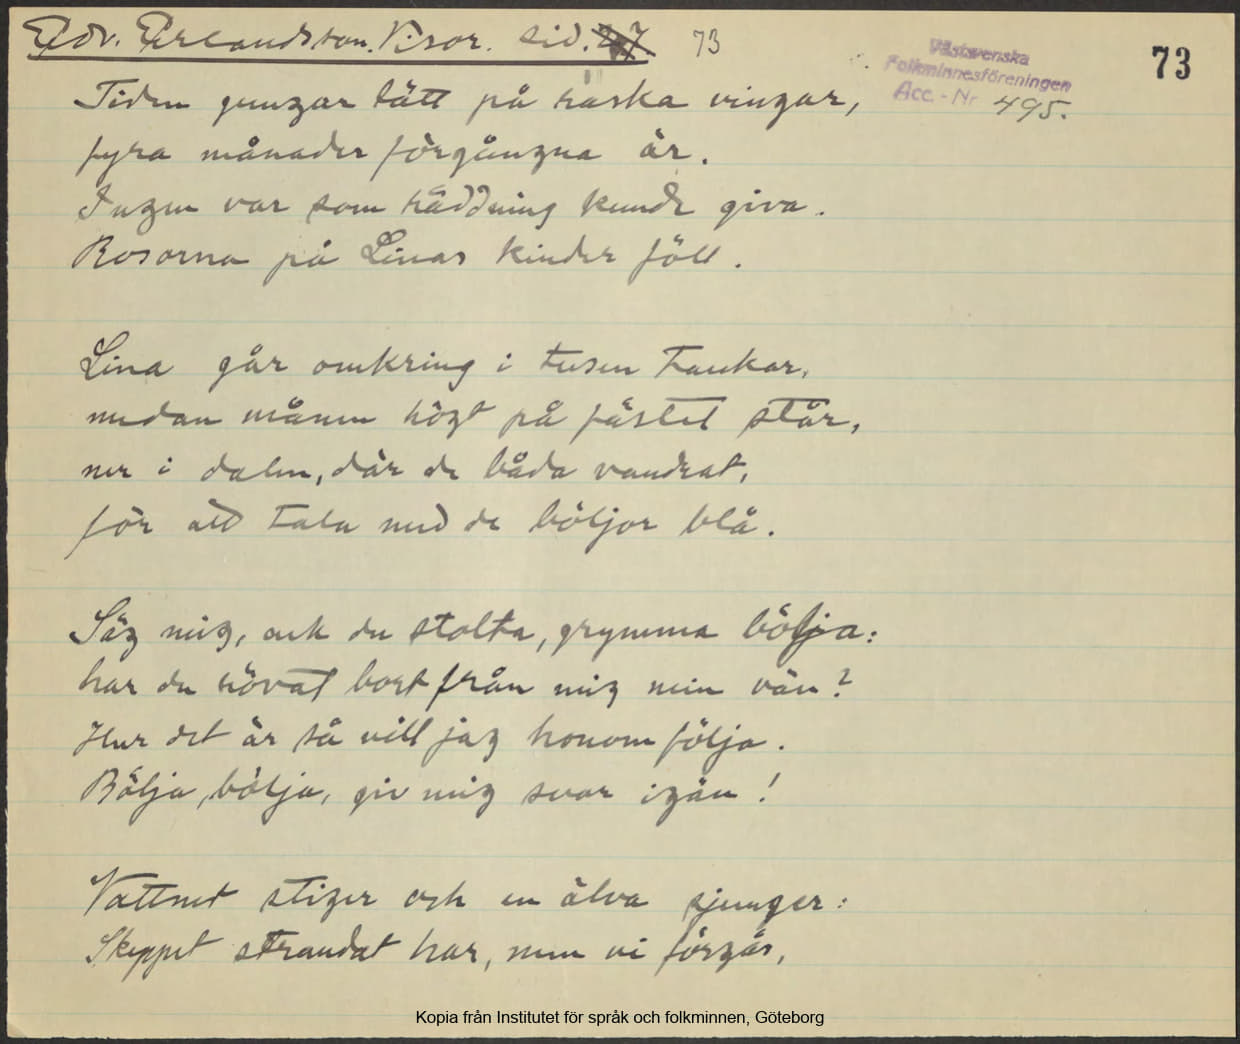 Edv. Erlandsson. Visor. Sid. 73
73
Västsvenska
Folkminnesföreningen
Acc. - Nr 495.
Tiden gungar lätt på raska vingar,
fyra månader förgångna är.
Ingen var som räddning kunde giva.
Rosorna på Linas kinder föll.
Lina går omkring i tusen tankar,
medan månen högt på fästet står,
ner i dalen, där de båda vandrat,
för att tala med de böljor blå.
Säg mig, ack du stolta, grymma bölja:
har du rövat bort från mig min vän?
Hur det är så vill jag honom följa.
Bölja, bölja, giv mig svar igän!
Vattnet stiger och en älva sjunger:
Skeppet strandat har, men vi förgås,
Kopia från Institutet för språk och folkminnen, Göteborg